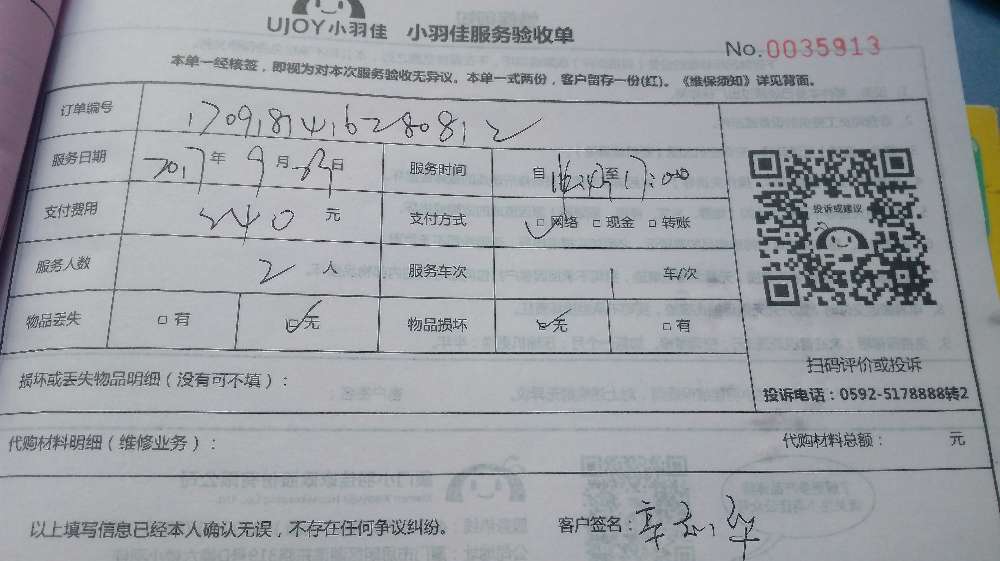 UJOY小羽佳 小羽佳服务验收单
No.0035913
本单一经核签，即视为对本次服务验收无异议。本单一式两份，客户留存一份(红)。《维保须知》详见背面。
订单编号 170918141628081 2
服务日期 2017 年 9 月 日 服务时间 自 至 17:00
支付费用 240 元 支付方式 □网络 □现金 □转账
投诉或建议
服务人数 2 人 服务车次 车/次
物品丢失 □有 □无 物品损坏 □无 □有
扫码评价或投诉
损坏或丢失物品明细（没有可不填）：
投诉电话：0592-5178888转2
代购材料明细（维修业务）： 代购材料总额： 元
以上填写信息已经本人确认无误，不存在任何争议纠纷。 客户签名：